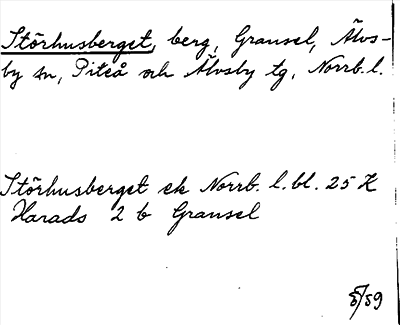 Störhusberget, berg, Gransel, Älvs-
by sn, Piteå och Älvsby tg, Norrb. l.
Störhusberget ek Norrb. l. bl. 25 K
Harads 2 b Gransel
5/59